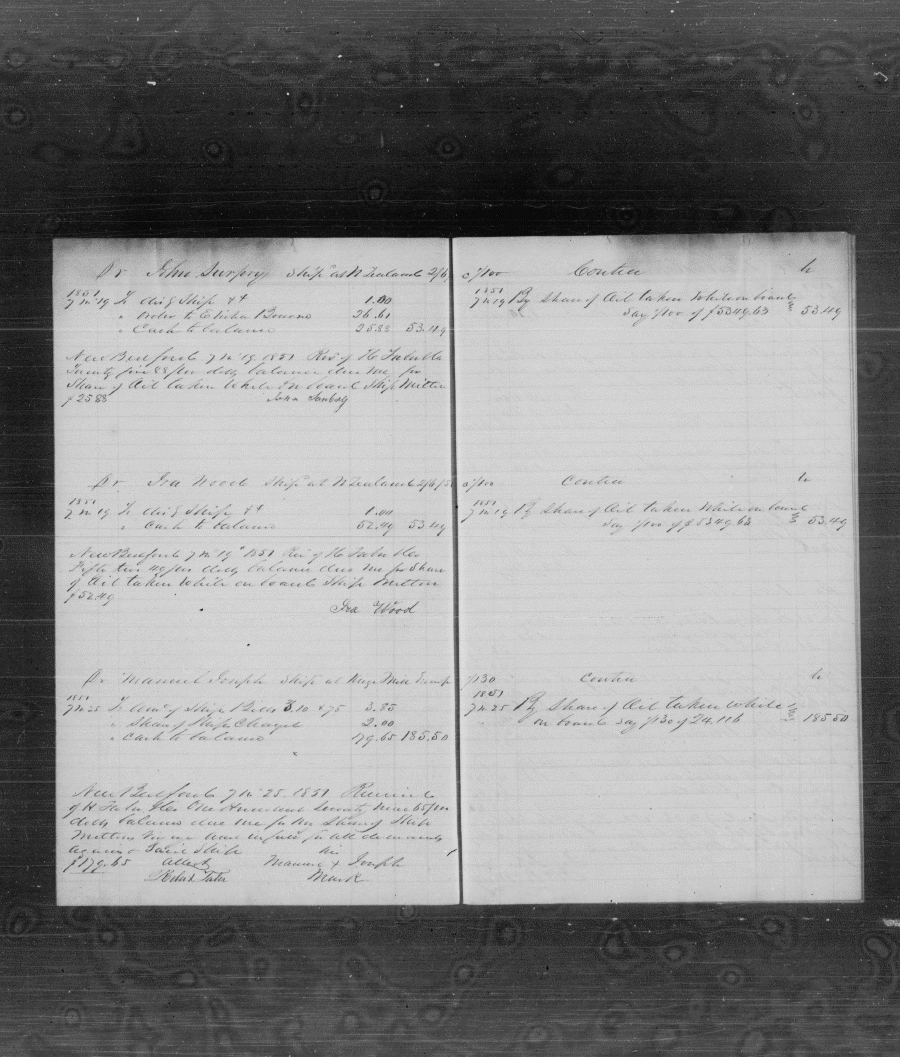 Dr John Ship at N Zealand 2/6 c 1/100 Contra
1851
7 m 19 To Ship 1.00
" order to Elisha 26.61
" Cash to balance 25.88 53.49
1851
7 m 19 By Share of Oil taken While on board
Say 1/100 of $5349.63 53.49
New Bedford 7 m 19 1851 Rec of H Taber &Co
Twenty five 88/100 dolls balance due me for
Share of Oil taken While on board Ship Milton
$25 88 John
Dr Ira Wood Ship at N Zealand 2/6/5 c 1/100 Contra
1851
7 m 19 To Ship 1.00
" Cash to balance 52.49 53.49
1851
7 m 19 By Share of Oil taken While on board
Say 1/100 of $5349.63 53.49
New Bedford 7 m 19 1851 Rec of H Taber &Co
Fifty two 49/100 dolls balance due me for Share
of Oil taken While on board Ship Milton
$52.49
Ira Wood
Dr Manuel Joseph Ship at 1/130 Contra
1851
7 m 25 To Ship Bills 3.10 & 75 3.85
" Share of Ship Charges 2.00
" Cash to balance 179.65 185.50
1851
7 m 25 By Share of Oil taken While
on board Say 1/130 of 24.116 185.50
New Bedford 7 m 25 1851 Received
of H Taber &Co One Hundred Seventy Nine 65/100
dolls balance due me for my Share of Ship
Milton in full for all demands
against Said Ship his
$179.65 Attest Manuel x Joseph
Taber Mark